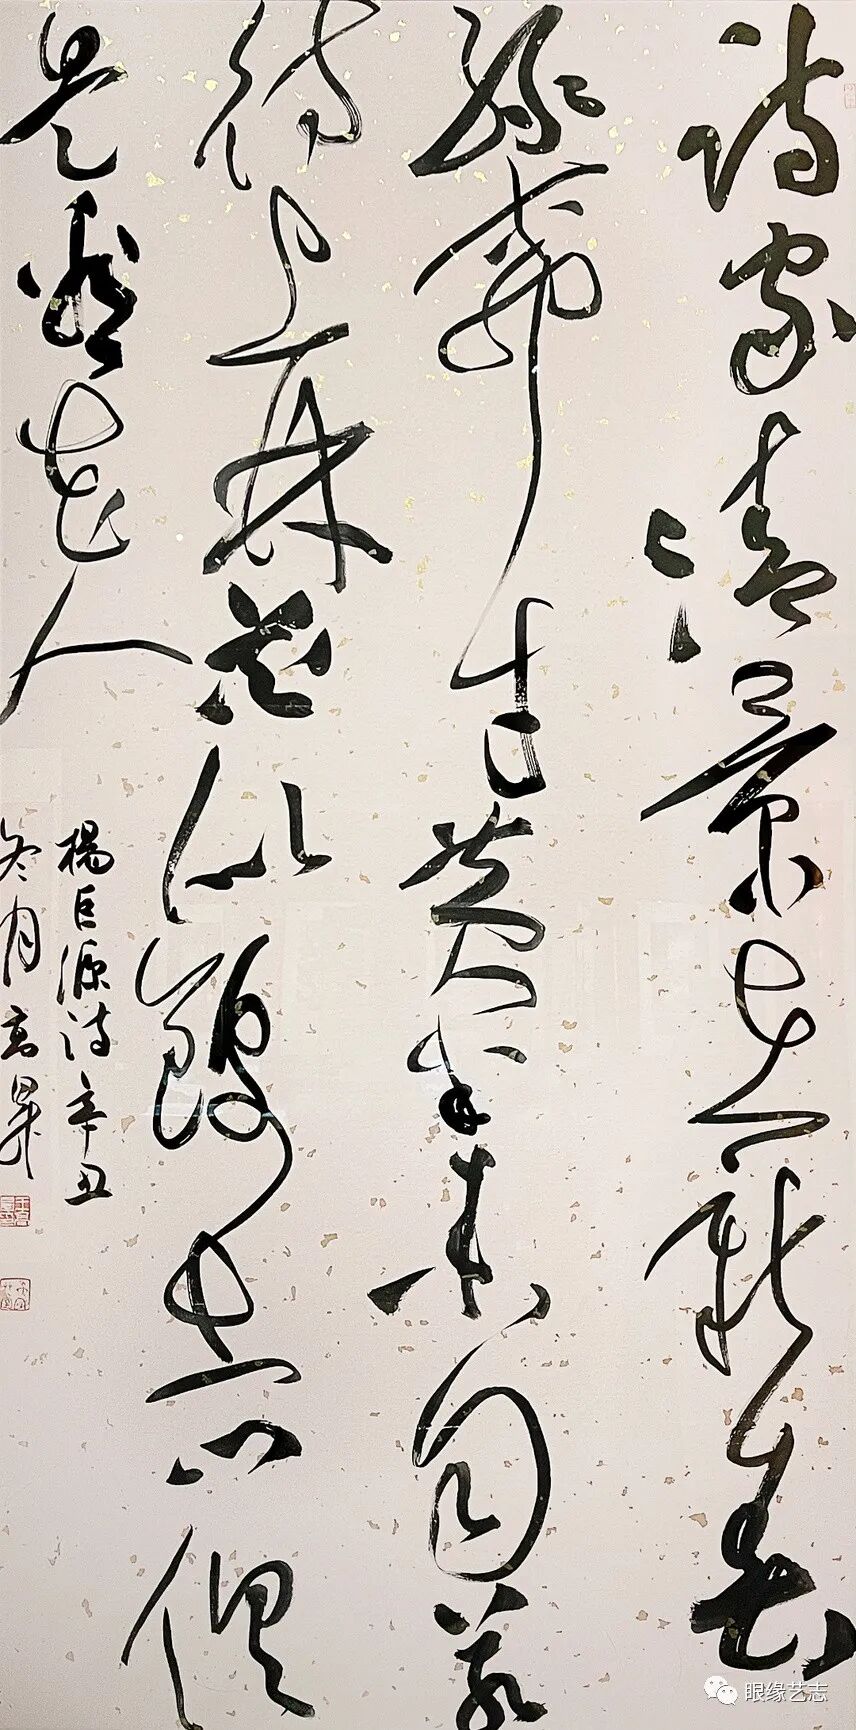 诗家清景在新春
绿柳才黄半未匀若
待上林花似锦出门俱
是看花人
楊巨源诗辛丑
冬月高昇
眼缘艺志